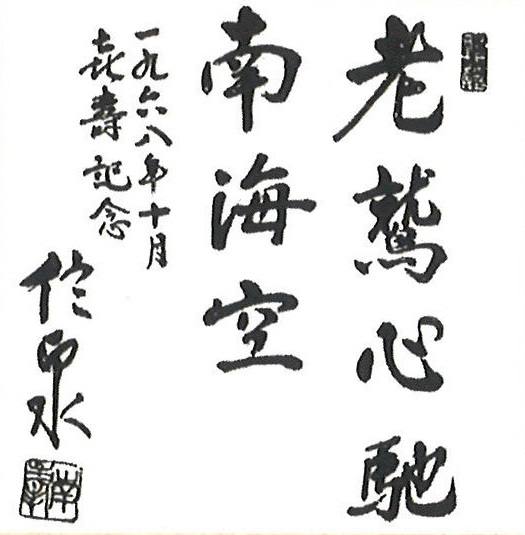 老鷲心馳
南海空
一九六八年十月
㐂壽記念
佇印水